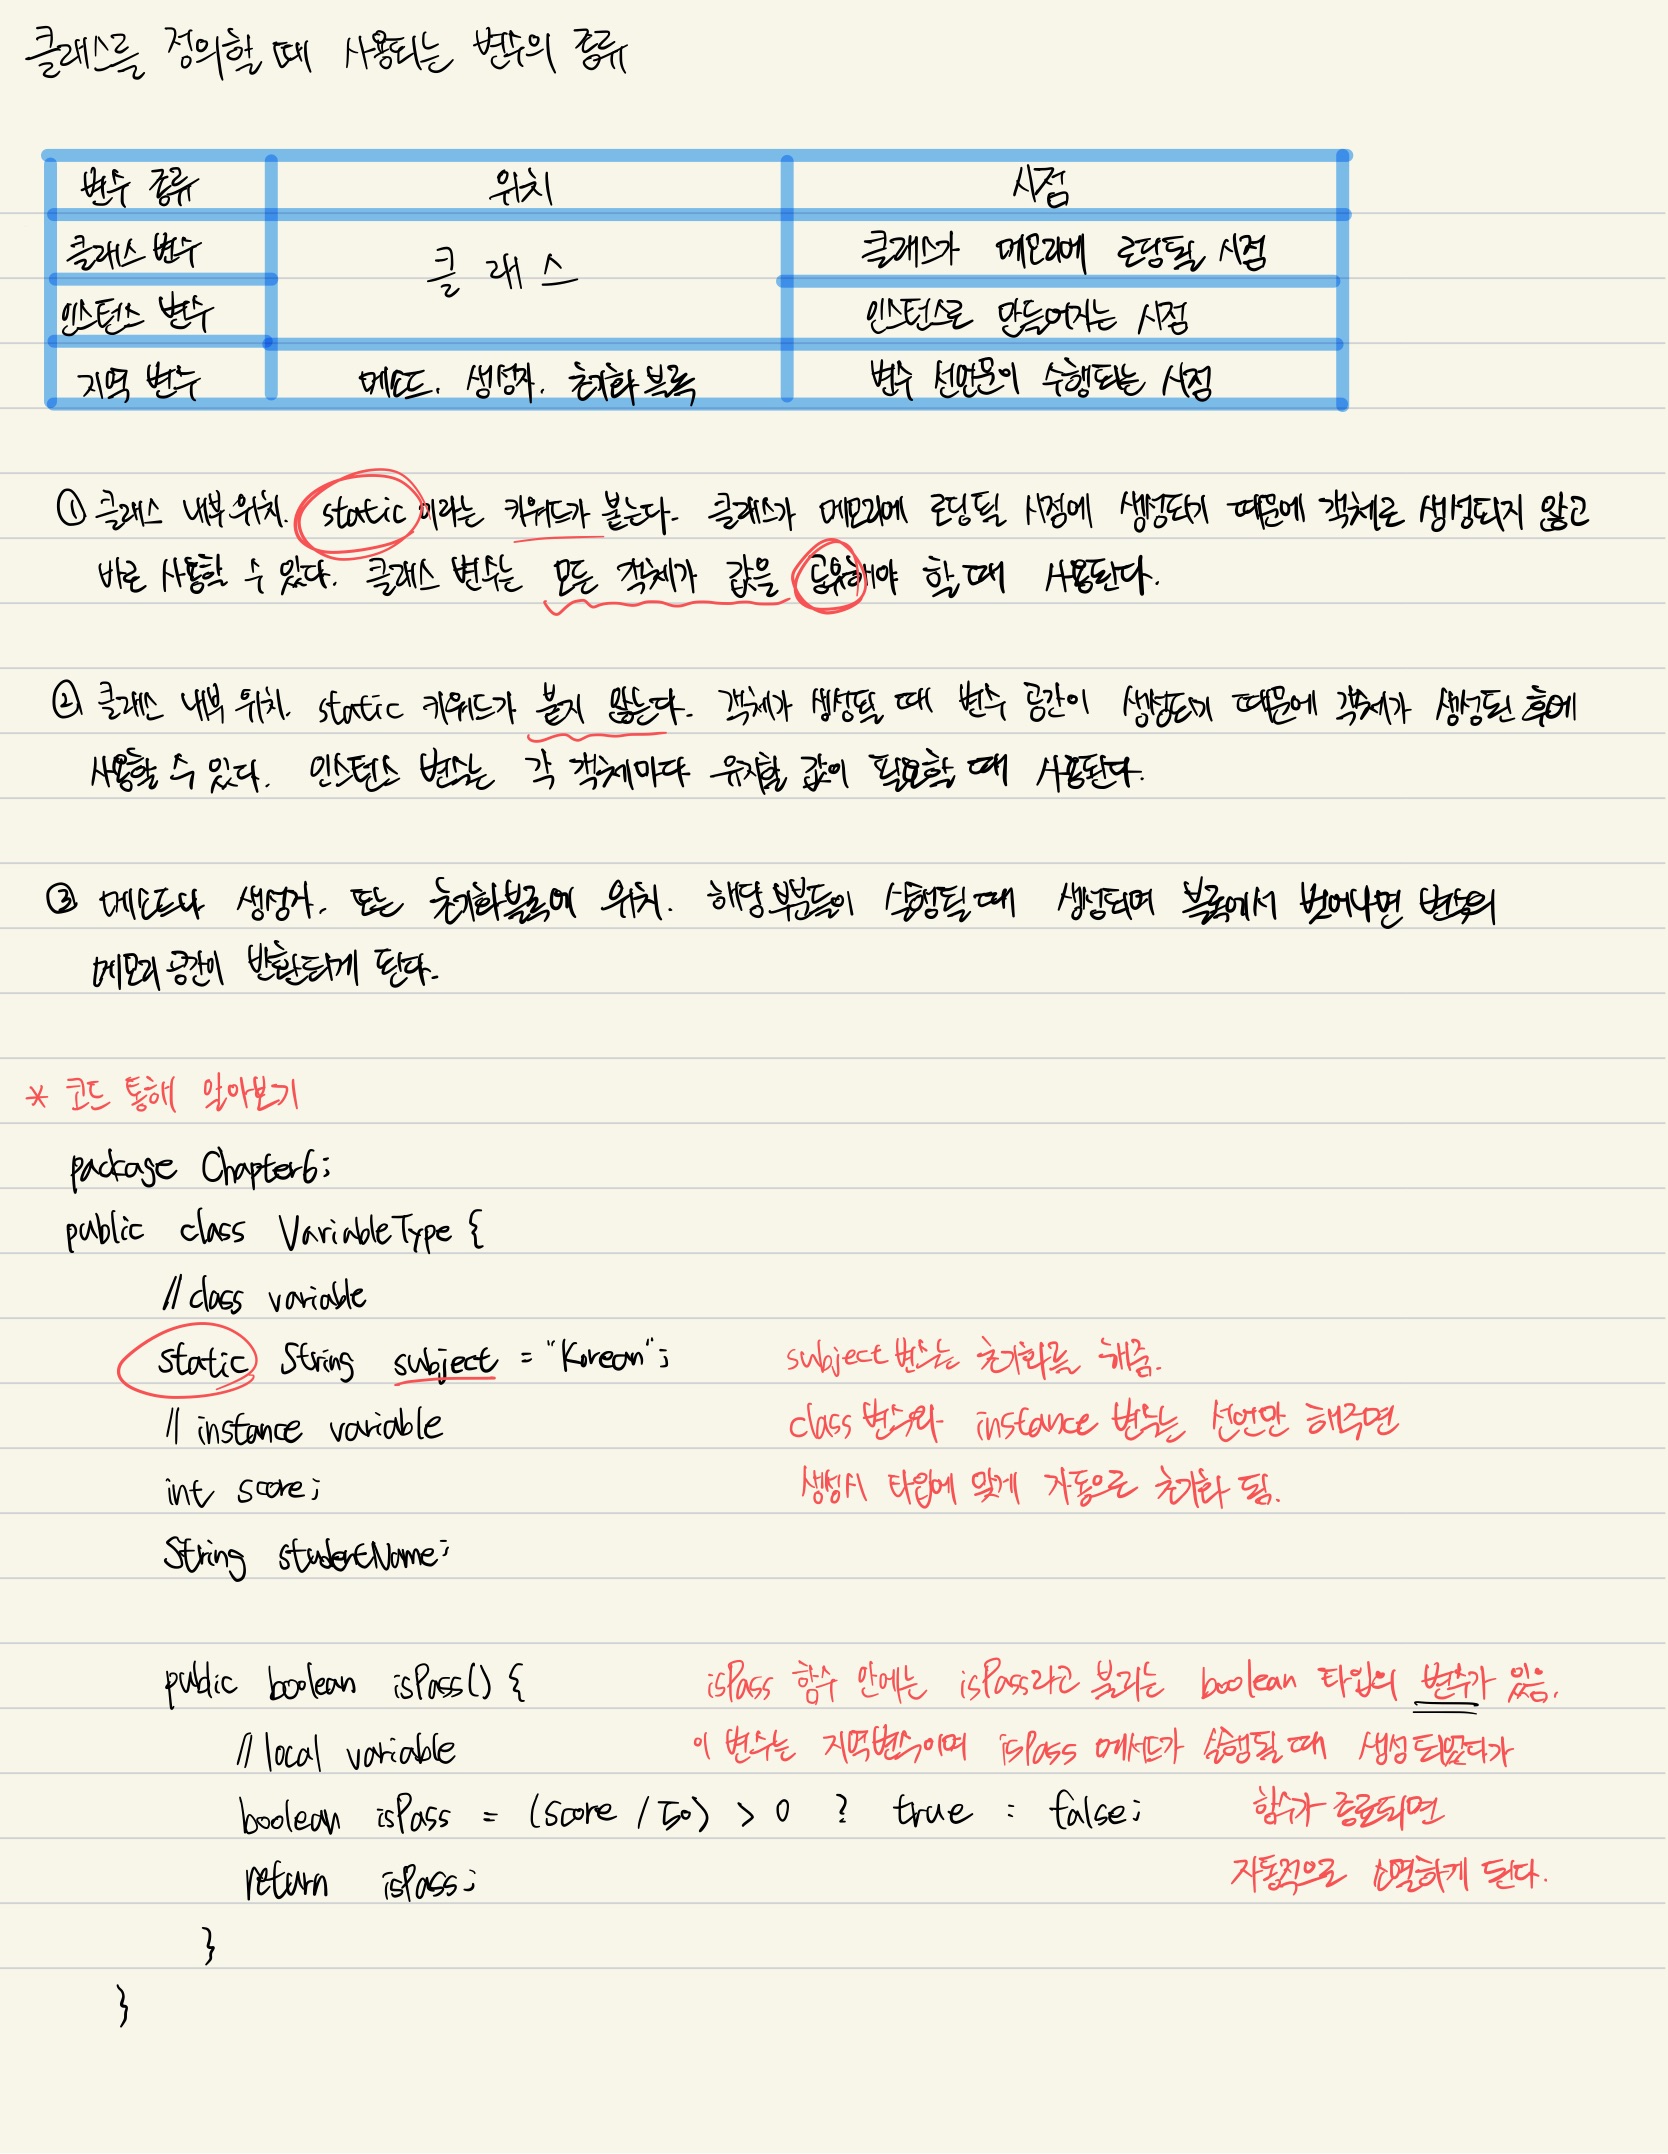 클래스를 정의할 때 사용되는 변수의 종류
변수 종류 위치 시점
클래스 변수 클래스 클래스가 메모리에 로딩될 시점
인스턴스 변수 인스턴스로 만들어지는 시점
지역 변수 메소드, 생성자, 초기화 블록 변수 선언문이 수행되는 시점
① 클래스 내부 위치. static이라는 키워드가 붙는다. 클래스가 메모리에 로딩될 시점에 생성되기 때문에 객체로 생성되지 않고
바로 사용할 수 있다. 클래스 변수는 모든 객체가 값을 공유해야 할 때 사용된다.
② 클래스 내부 위치. static 키워드가 붙지 않는다. 객체가 생성될 때 변수 공간이 생성되기 때문에 객체가 생성된 후에
사용할 수 있다. 인스턴스 변수는 각 객체마다 유지할 값이 필요할 때 사용된다.
③ 메소드나 생성자, 또는 초기화블록에 위치. 해당 부분들이 실행될 때 생성되며 블록에서 벗어나면 변수의
메모리 공간이 반환되게 된다.
* 코드 통해 알아보기
package Chapter6;
public class VariableType {
//class variable
static String subject = "Korean"; subject 변수는 초기화를 해줌.
// instance variable class 변수와 instance 변수는 선언만 해주면
int score; 생성시 타입에 맞게 자동으로 초기화 됨.
String studentName;
public boolean isPass() { isPass 함수 안에는 isPass라고 불리는 boolean 타입의 변수가 있음.
// local variable 이 변수는 지역변수이며 isPass 메서드가 실행될 때 생성되었다가
boolean isPass = (score / 50) > 0 ? true : false; 함수가 종료되면
return isPass; 자동적으로 소멸하게 된다.
}
}